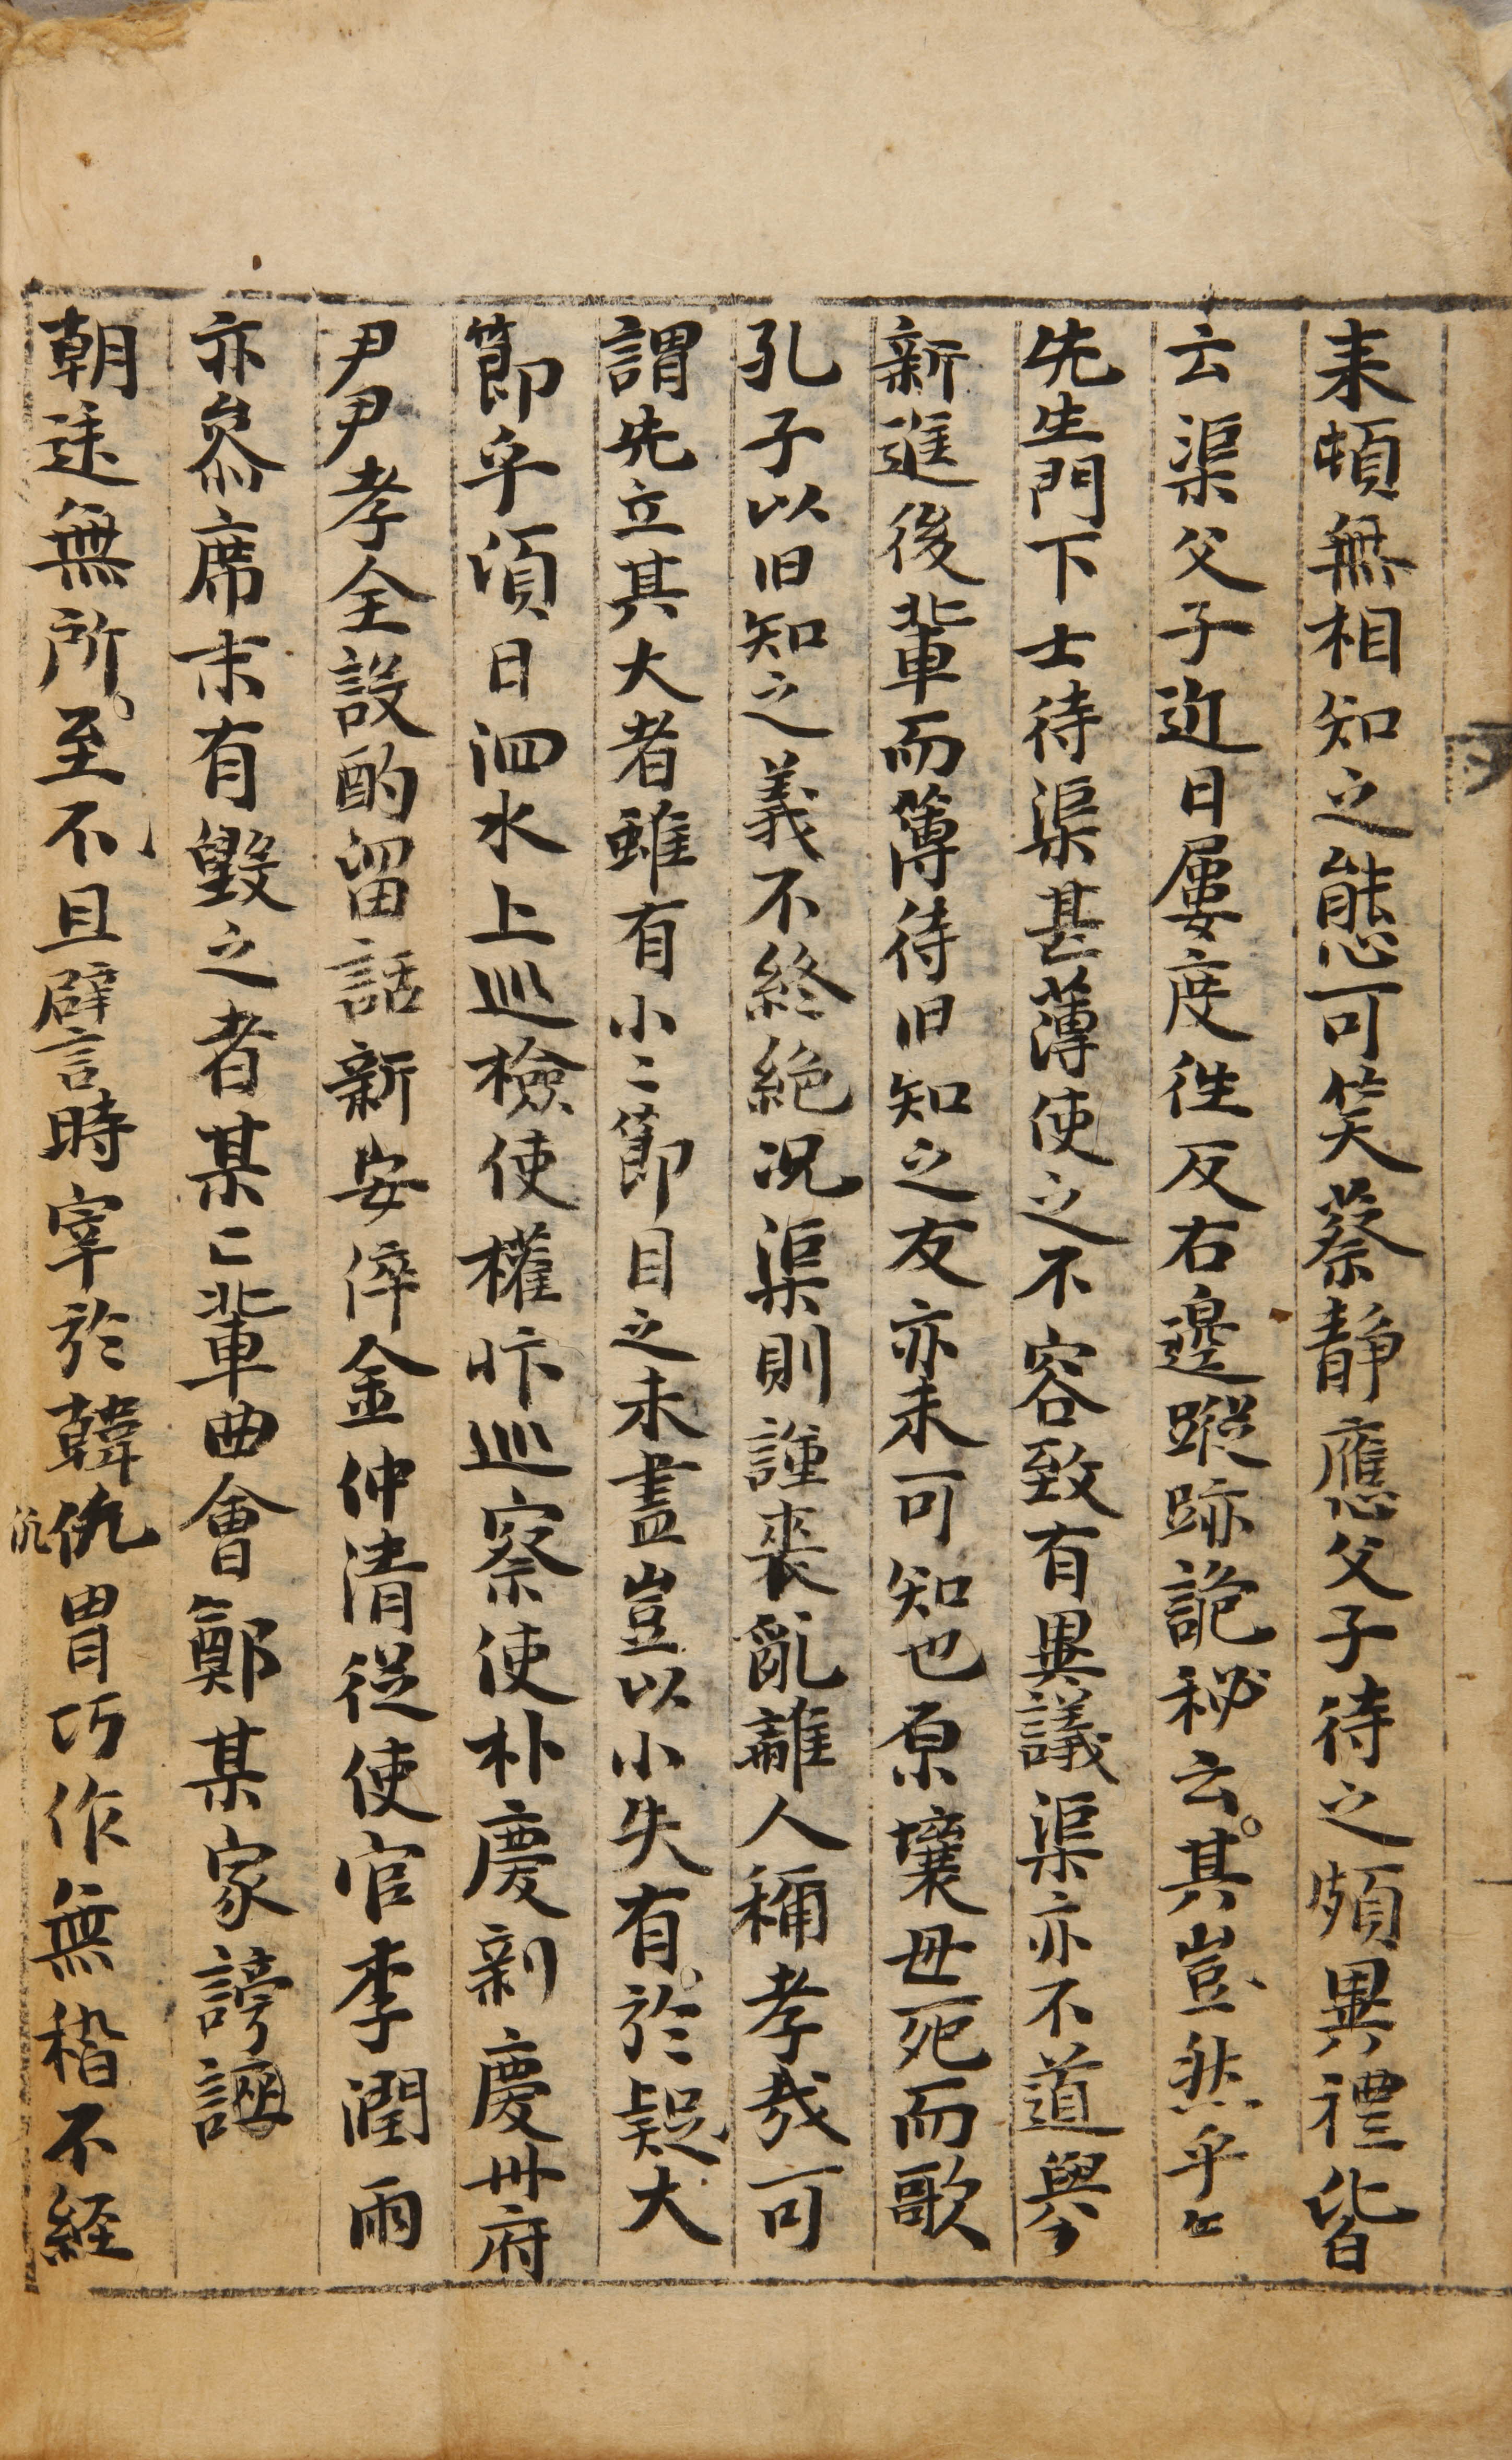 来頓無相知之態可笑蔡静應父子待之頗異禮皆
云渠父子近日屢度徃反右邊蹤跡詭秘云其豈然乎〻
先生門下士待渠甚薄使之不容致有異議渠亦不道與
新進後輩而薄待旧知之友亦未可知也原壤毋死而歌
孔子以旧知之義不終絶况渠則謹喪亂離人稱孝哉可
謂先立其大者雖有小〻節目之未盡豈以小失有於疑大
節乎須日泗水上巡檢使權忭巡察使朴慶新慶州府
尹尹孝全設酌留話新安倅金仲清從使官李潤雨
亦叅席末有毀之者某〻輩曲會鄭某家謗誣
朝廷無所至不且譬言時宰於韓仇冑巧作無稽不經
侂